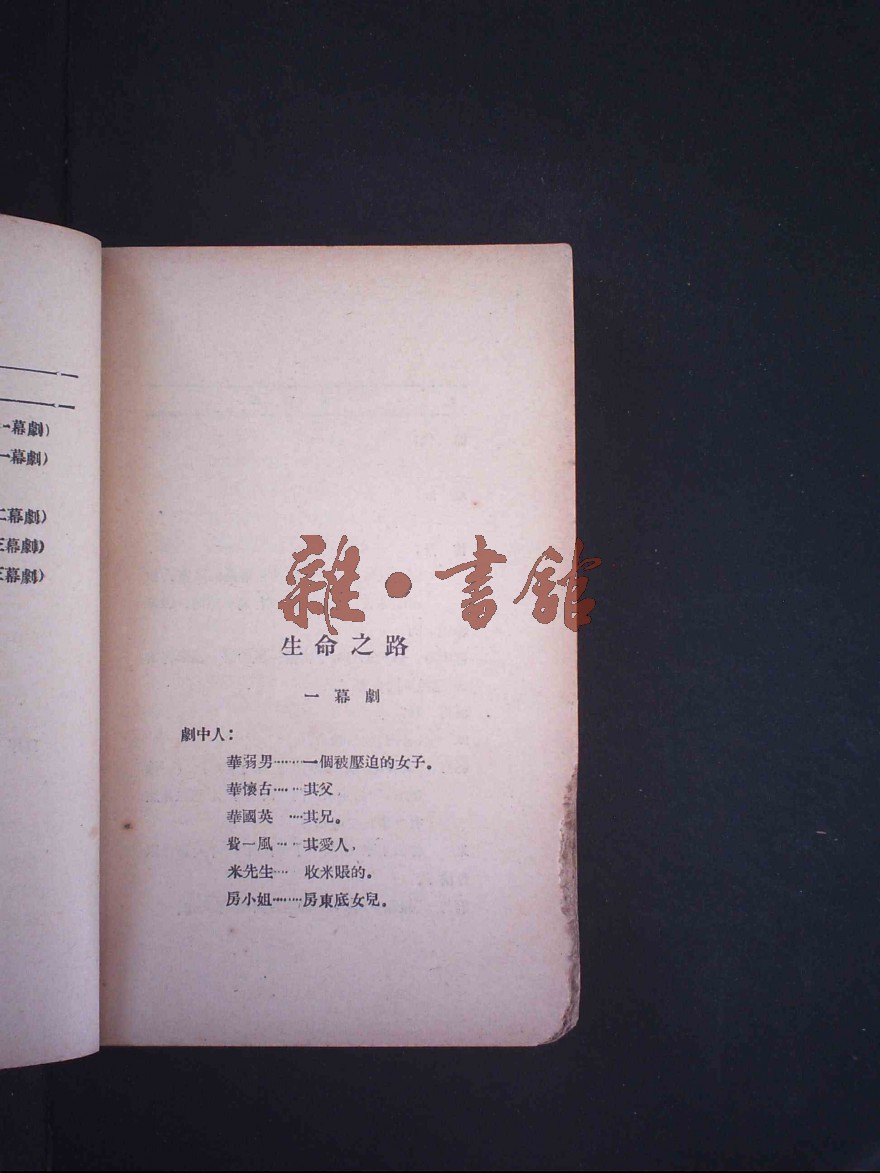 一幕劇)
一幕劇)
二幕劇)
三幕劇)
三幕劇)
雜·書館
生命之路
一幕劇
劇中人：
華弱男………一個被壓迫的女子。
華懷古……其父，
華國英 …其兄。
一風……其愛人，
米先生… 收米賬的。
房小姐………房東底女兒。